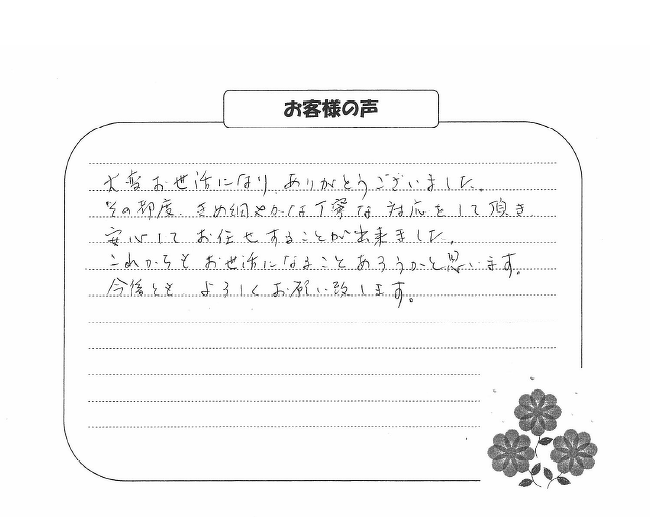 お客様の声
大変お世話になり ありがとうございました。
その都度、きめ細やかな丁寧な 対応をして頂き
安心して お任せすることが出来ました。
これからも お世話になることあろうかと思います。
今後とも よろしくお願い致します。